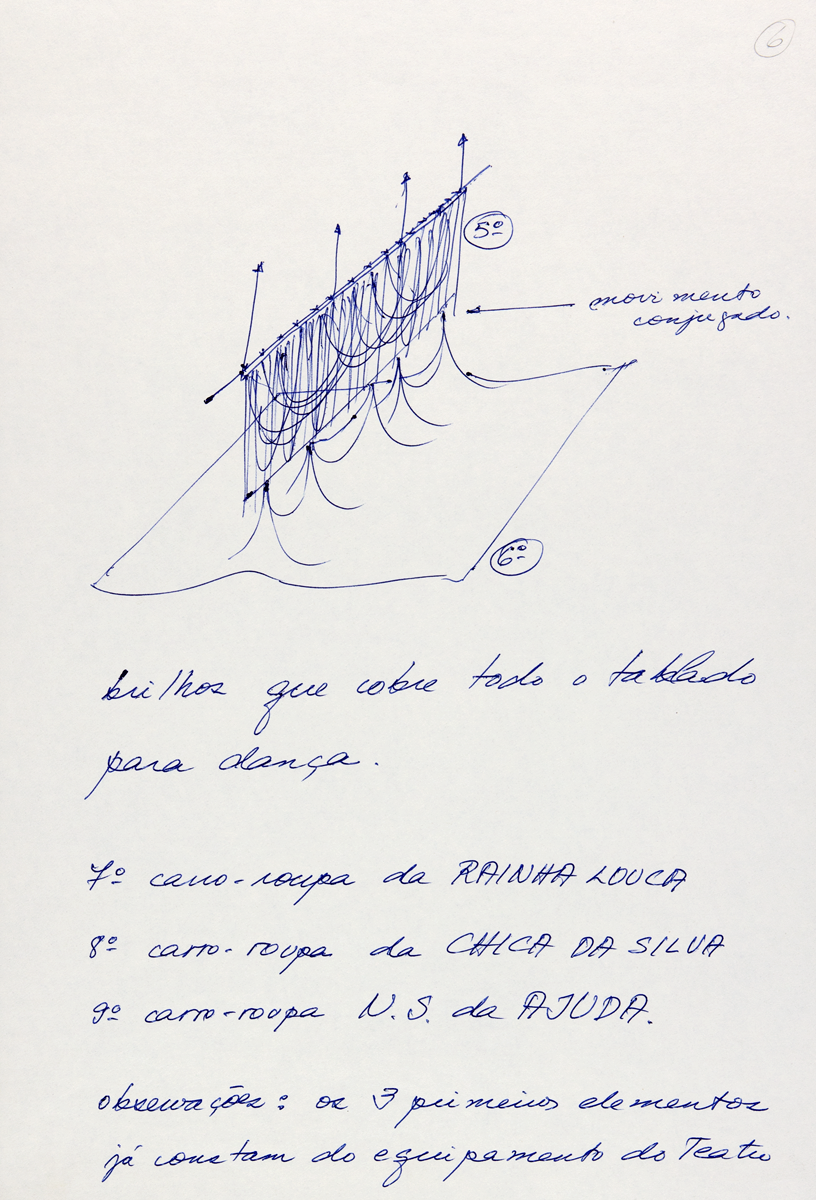 6
5º
movimento
conjugado.
6º
brilhos que cobre todo o tablado
para dança.
7º carro-roupa da RAINHA LOUCA
8º carro-roupa da CHICA DA SILVA
9º carro-roupa N.S. da AJUDA.
observações: os 3 primeiros elementos
já constam do equipamento do Teatro